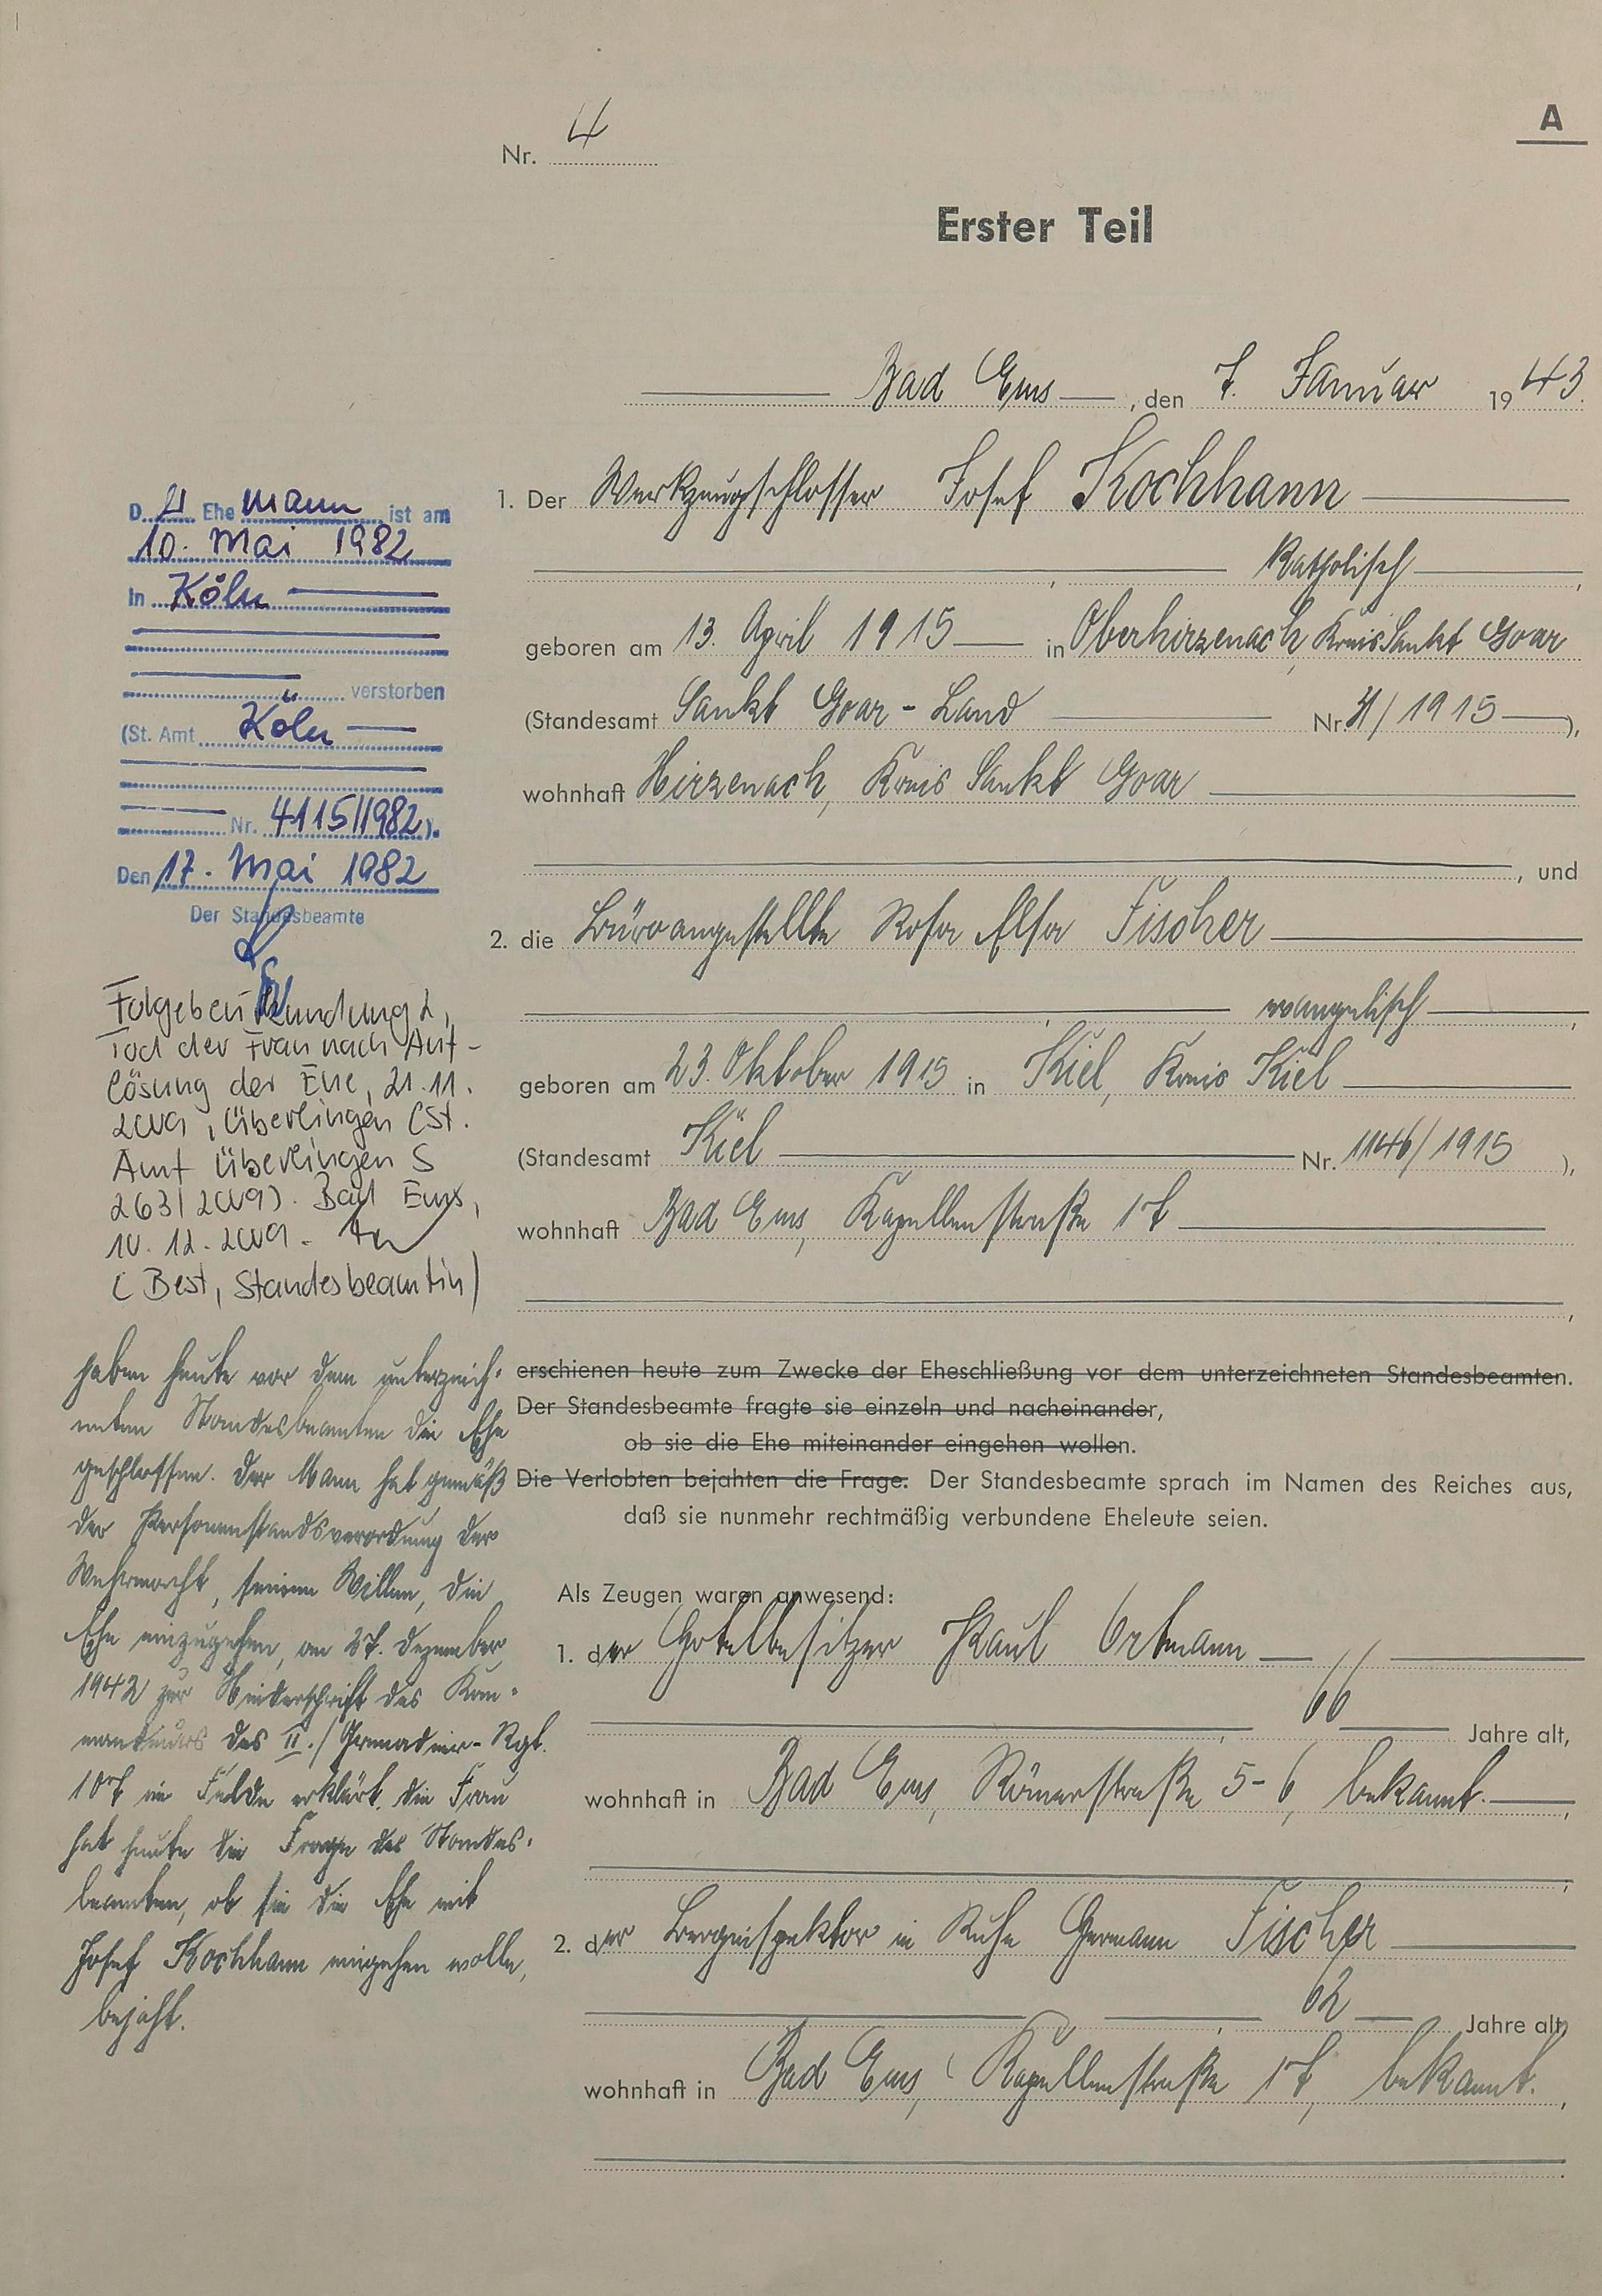 A
Nr. 4
Erster Teil
Bad Ems, den 7. Januar 1943.
1. Der Werkzeugschlosser Josef Kochhann
, katholisch,
geboren am 13. April 1915 in Oberhirzenach, Kreis Sankt Goar
(Standesamt Sankt Goar-Land Nr. /1915),
wohnhaft Hirzenach, Kreis Sankt Goar
, und
2. die Büroangestellte Rosa Elsa Fischer
, evangelisch,
geboren am 23. Oktober 1915 in Kiel, Kreis Kiel
(Standesamt Kiel Nr. 1146/1915),
wohnhaft Bad Ems, Kapellenstraße 17
,
erschienen heute zum Zwecke der Eheschließung vor dem unterzeichneten Standesbeamten.
Der Standesbeamte fragte sie einzeln und nacheinander,
ob sie die Ehe miteinander eingehen wollen.
Die Verlobten bejahten die Frage. Der Standesbeamte sprach im Namen des Reiches aus,
daß sie nunmehr rechtmäßig verbundene Eheleute seien.
Als Zeugen waren anwesend:
1. der Hotelbesitzer Paul Ortmann
, 66 Jahre alt,
wohnhaft in Bad Ems, Römerstraße 5-6, bekannt.
;
2. der Berginspektor in Ruhe Hermann Fischer
, 62 Jahre alt,
wohnhaft in Bad Ems, Kapellenstraße 17, bekannt.
D. Ehemann ist am
10. Mai 1982
in Köln
verstorben
(St. Amt Köln
Nr. 4115/1982).
Den 17. Mai 1982
Der Standesbeamte
Folgebeurkundung 2,
Tod der Frau nach Auf-
lösung der Ehe, 21.11.
2009, Überlingen (St.
Amt Überlingen S
263/2009). Bad Ems,
10.12.2009.
(Best, Standesbeamtin)
haben heute vor dem unterzeich-
neten Standesbeamten die Ehe
geschlossen. Der Mann hat gemäß
der Personenstandsverordnung der
Wehrmacht, seinen Willen, die
Ehe einzugehen, am 27. Dezember
1942 zur Niederschrift des Kom-
mandeurs des II./Grenadier-Rgt.
107 im Felde erklärt. Die Frau
hat heute die Frage des Standes-
beamten, ob sie die Ehe mit
Josef Kochhann eingehen wolle,
bejaht.